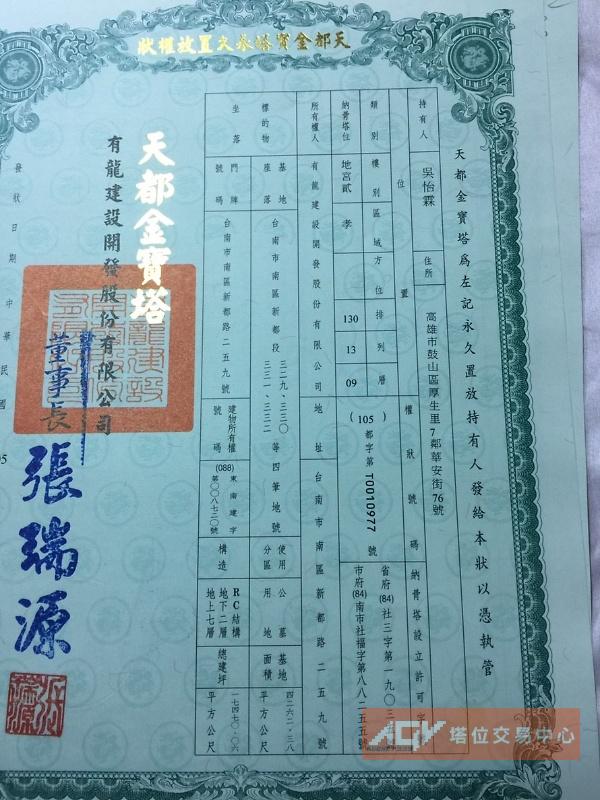 天都金寶塔永久置放權狀
天都金寶塔為左記永久置放持有人發給本狀以憑執管
持有人
吳怡霖
住所
高雄市鼓山區厚生里7鄰華安街76號
位置
權狀號碼
納骨塔設立許可字
類別
樓別
區域
方位
排
列
層
納骨塔位
地宮貳
孝
130
13
09
(105)都字第T0010977號
省府(84)社三字第一九〇三
市府(84)南市社福字第八八二五五號
所有權人
有龍建設開發股份有限公司
地址
台南市南區新都路二五九號
標的物
基地座落
台南市南區新都段
三二九、三三〇
三三一、三三二
等四筆地號
使用分區
公墓用地
基地面積
四二六二·二八
平方公尺
坐落
門牌號碼
台南市南區新都路二五九號
建物所有權號碼
(088)東南建字
第〇〇八七二〇號
構造
RC結構
地下二層
地上七層
總建坪
一七四七〇·〇六
平方公尺
天都金寶塔
有龍建設開發股份有限公司
董事長
張瑞源
發狀日期中華民國
AGV 塔位交易中心